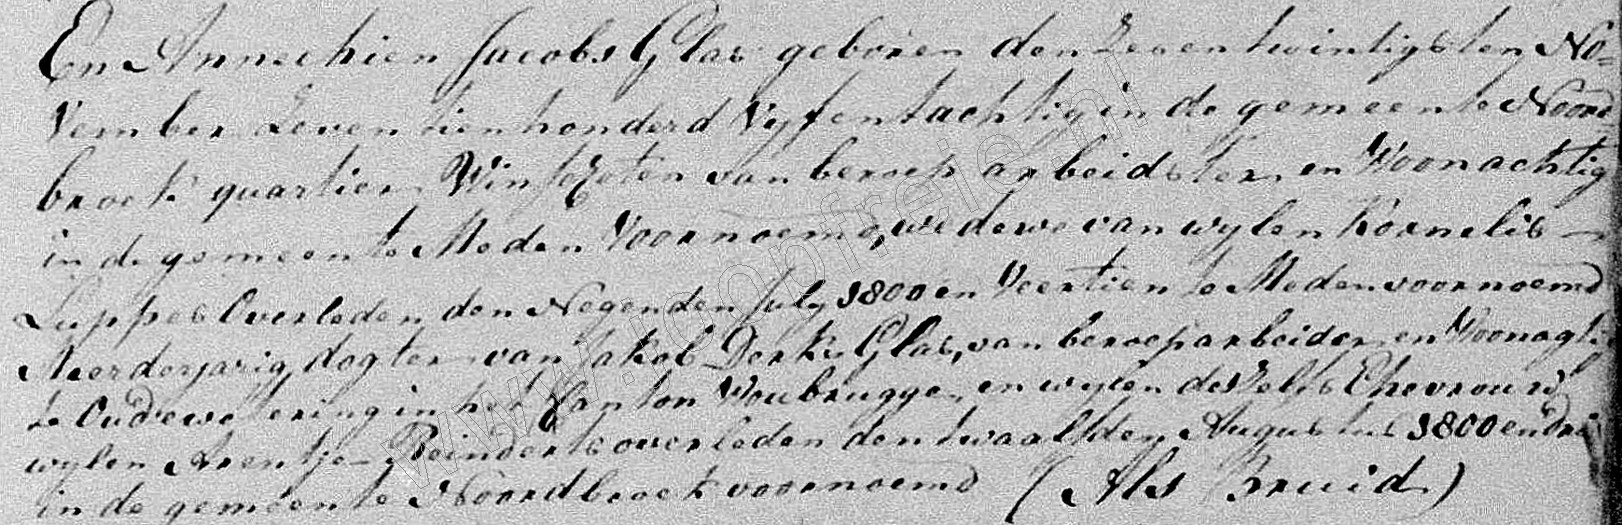 En Annechien Jacobs Glas geboren den Zeven twintigsten No=
vember Zeventienhonderd Vyfentachtig in de gemeente Noord=
broek quartier Winschoten van beroep arbeidster en Woonachtig
in de gemeente Meden Voornoemd, wedewe van wylen Kornelis
Luppes Overleden den Negenden July 1800 en Veertien te Meden voornoemd
Meerderjarig dogter van Jakob Derks Glas, van beroep arbeider en Woonagt
te Oudewetering in het Canton Woubrugge en wylen deszelfs Ehevrouw
wylen Arentje Reinderts overleden den twaalfden Augustus 1800 en drie
in de gemeente Noordbroek voornoemd (Als Bruid)
www.joopfreie.nl